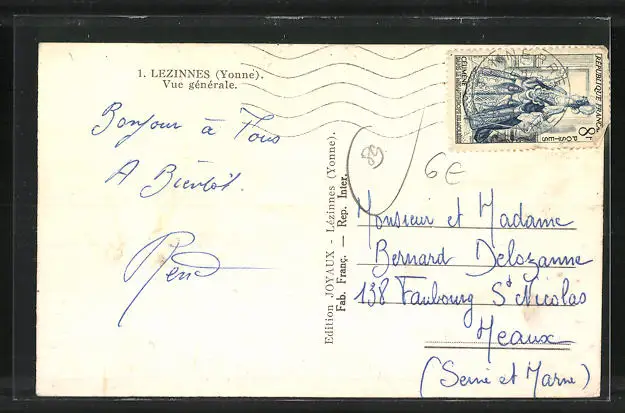 1. LEZINNES (Yonne).
Vue générale.
Bonjour à Tous
A Bientôt.
René
Edition JOYAUX - Lézinnes (Yonne).
Fab. Franç. — Rep. Inter.
REPUBLIQUE FRANÇAISE
8f
POSTES
89
6€
Monsieur et Madame
Bernard Delozanne
138 Faubourg St Nicolas
Meaux
(Seine et Marne)